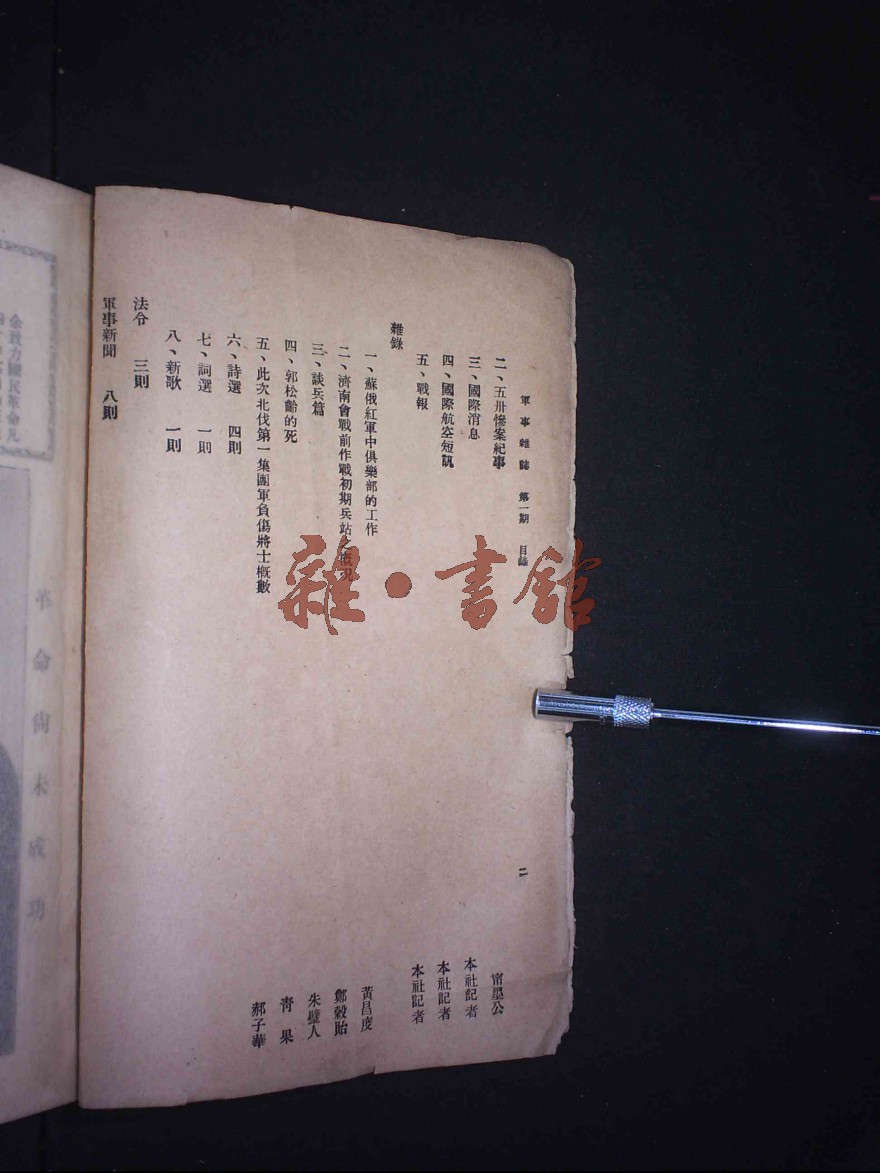 軍事雜誌 第一期 目錄 二
二、五卅慘案紀事 甯墨公
三、國際消息 本社記者
四、國際航空短訊 本社記者
五、戰報 本社記者
雜錄
一、蘇俄紅軍中俱樂部的工作 黃昌度
二、濟南會戰前作戰初期兵站之概況 鄭穀貽
三、談兵篇 朱璧人
四、郭松齡的死 青果
五、此次北伐第一集團軍負傷將士概數 郝子華
六、詩選 四則
七、詞選 一則
八、新歌 一則
法令 三則
軍事新聞 八則
革命尚未成功
余致力國民革命凡
雜·書館